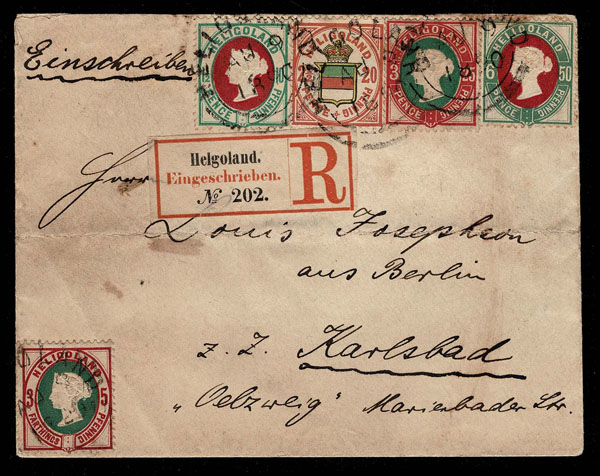 Einschreiben
HELIGOLAND
PENCE
PFENNIG
HELIGOLAND
20
PFENNIG
HELIGOLAND
PENCE
PFENNIG
HELIGOLAND
6
50
PENCE
PFENNIG
Helgoland.
Eingeschrieben.
№ 202.
R
Herrn
Louis Josephson
aus Berlin
z. Z. Karlsbad
"Oelzweig" Marienbader Str.
HELIGOLAND
3
5
FARTHINGS
PFENNIG